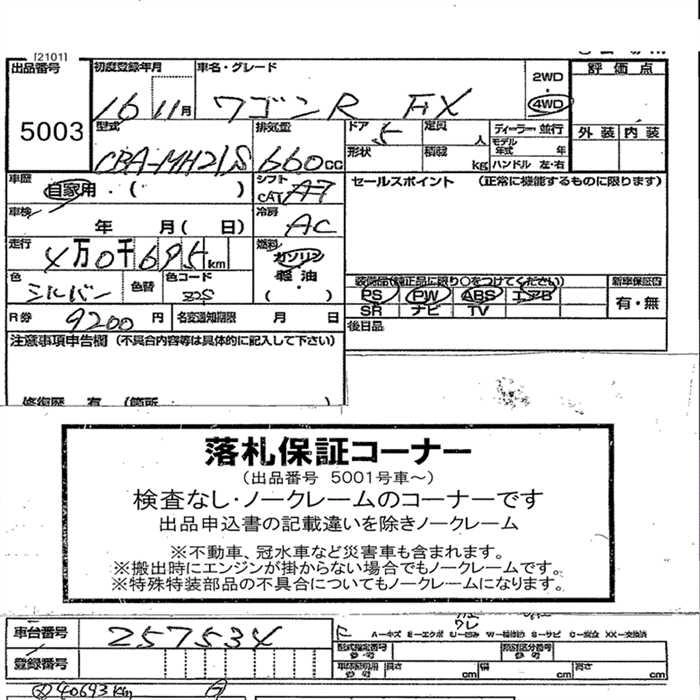 [2101]
出品番号
5003
初度登録年月
16 11月
車名・グレード
ワゴンR FX
2WD
4WD
評価点
外装 内装
型式
CBA-MH21S
排気量
660cc
ドア
5
定員
人
ディーラー・並行
モデル年式
年
形状
積載
kg
ハンドル 左・右
車歴
自家用・( )
シフト
CAT
車検
年 月( 日)
冷房
AC
走行
4万0千695km
燃料
ガソリン
軽油
( ・ )
色
シルバー
色替
色コード
R券
9200円
名変通知期限 月 日
セールスポイント (正常に機能するものに限ります)
装備品(純正品に限り○をつけてください)
PS PW ABS エアB
SR ナビ TV
新車保証書
有・無
後日品
注意事項申告欄 (不具合内容等は具体的に記入して下さい)
修復歴 有 (箇所 )
落札保証コーナー
(出品番号 5001号車〜)
検査なし・ノークレームのコーナーです
出品申込書の記載違いを除きノークレーム
※不動車、冠水車など災害車も含まれます。
※搬出時にエンジンが掛からない場合でもノークレームです。
※特殊特装部品の不具合についてもノークレームになります。
車台番号
257534
登録番号
A－キズ E－エクボ U－凹み W－補修跡 S－サビ C－腐食 XX－交換済
型式指定番号
類別区分番号
長さ cm 幅 cm 高さ cm
40693km